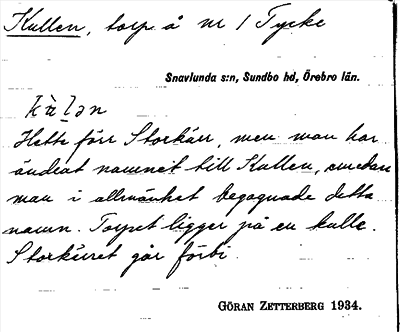 Kullen, torp å nr 1 Tycke
Snavlunda s:n, Sundbo hd, Örebro län.
kù̀lən
Hette förr Storkärr, men man har
ändrat namnet till Kullen, emedan
man i allmänhet begagnade detta
namn. Torpet ligger på en kulle.
Storkärret går förbi.
GÖRAN ZETTERBERG 1934.